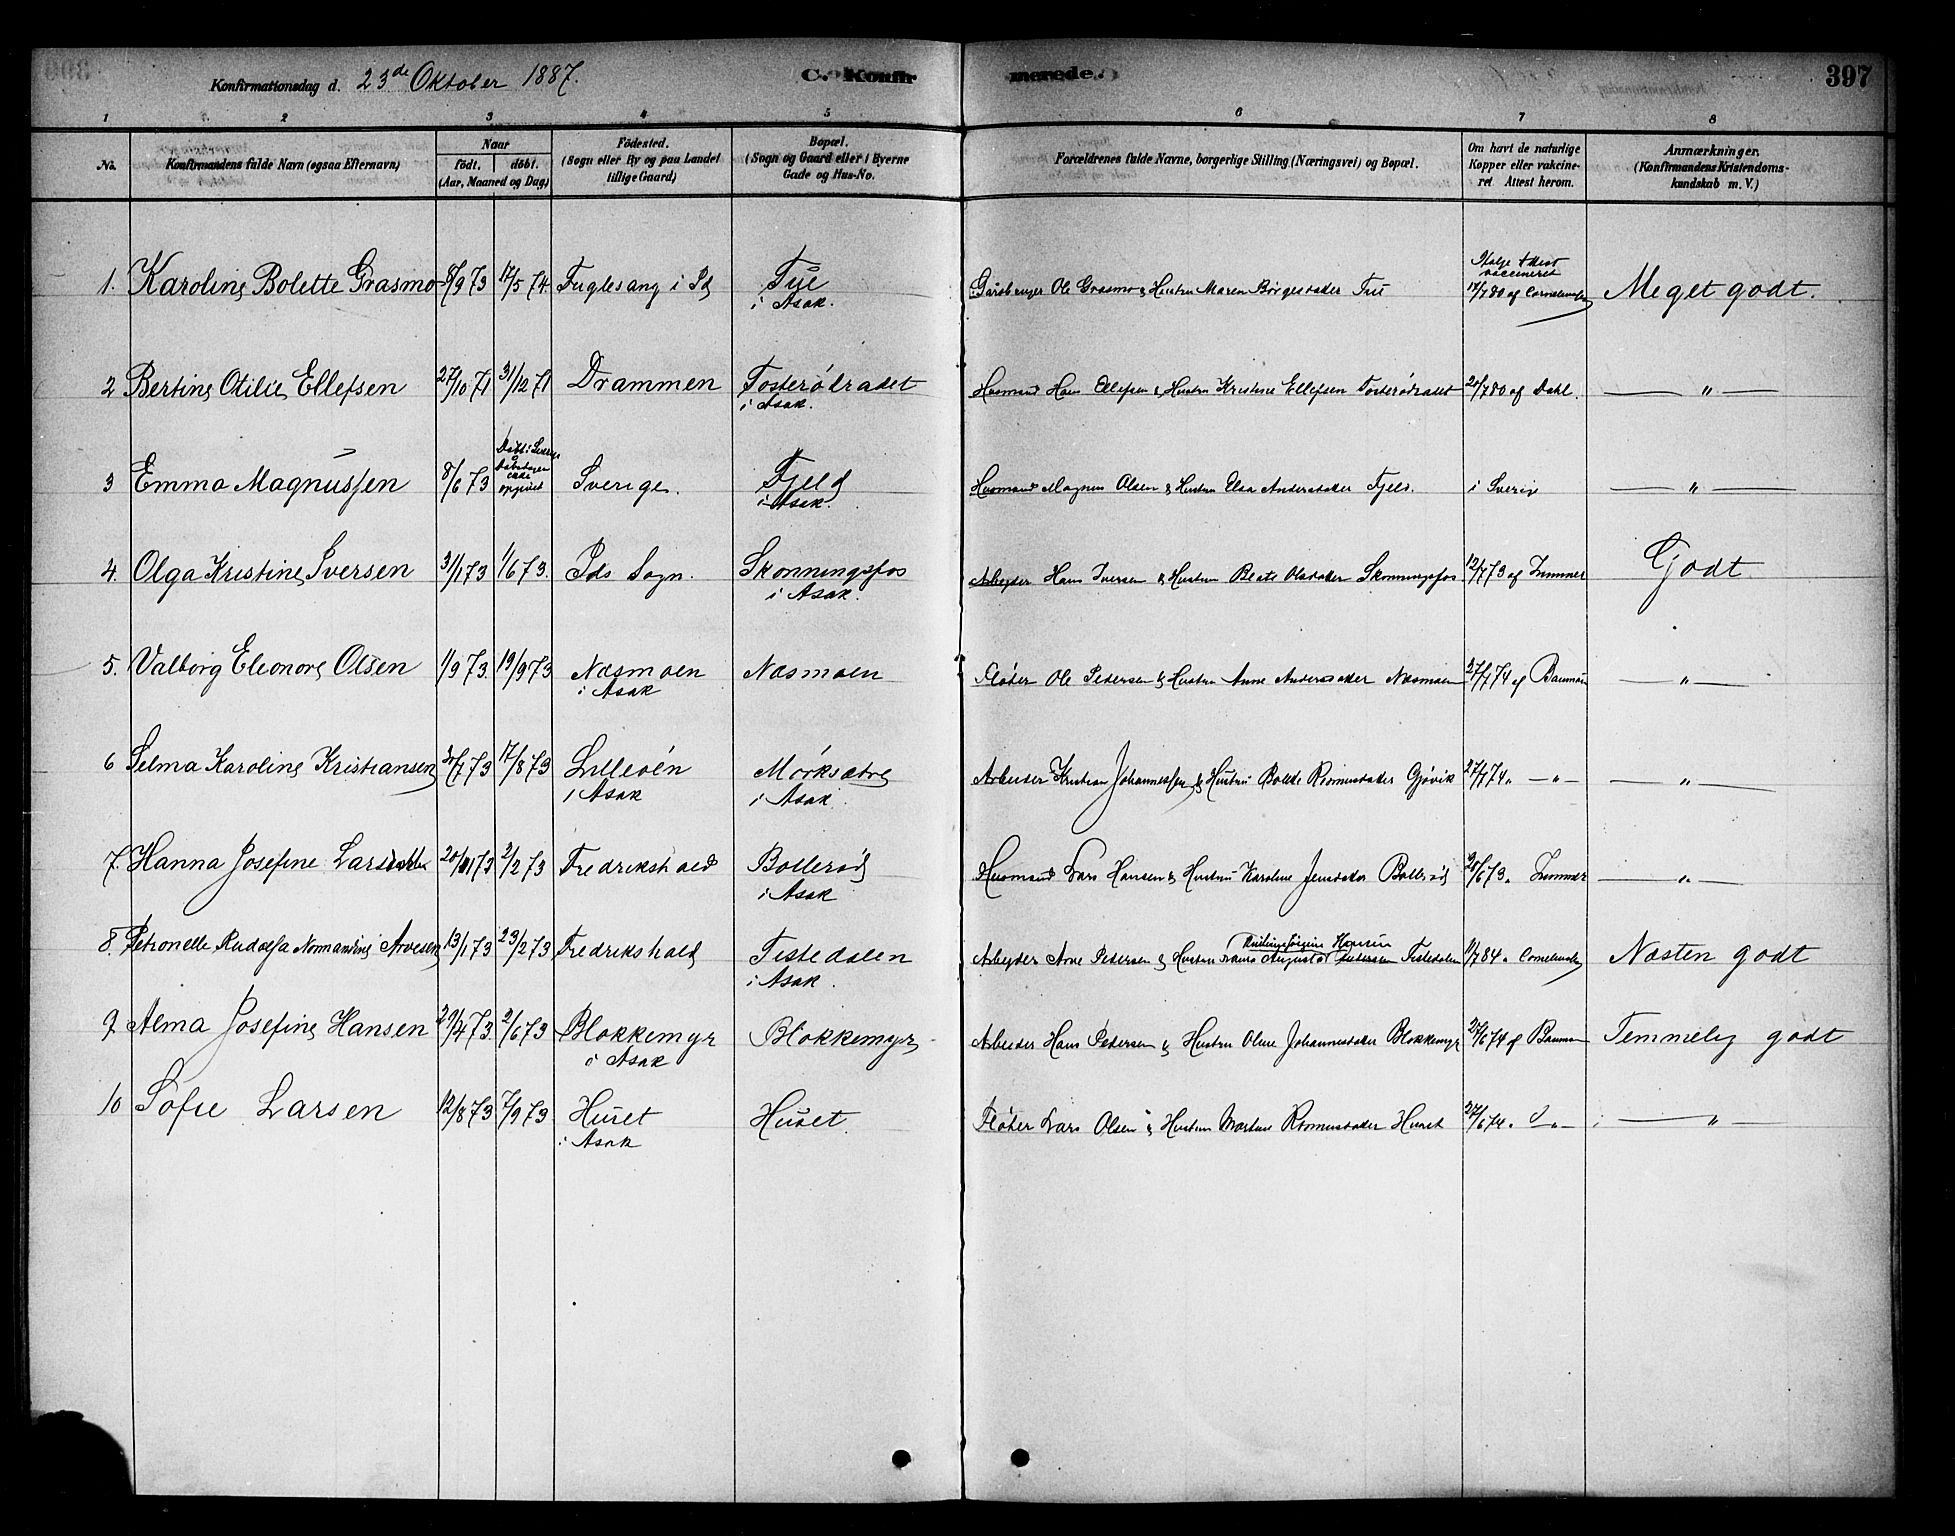 Konfirmationsdag d. 23de Oktober 1887.
C. Konfirmerede.
397
1 2 3 4 5 6 7 8
No.
Konfirmandens fulde Navn (ogsaa Efternavn)
Naar
födt. döbt.
(Aar, Maaned og Dag)
Födested.
(Sogn eller By og paa Landet
tillige Gaard)
Bopæl.
(Sogn og Gaard eller i Byerne
Gade og Hus-No.
Forældrenes fulde Navne, borgerlige Stilling (Næringsvei) og Bopæl.
Om havt de naturlige
Kopper eller vakcine-
ret Attest herom.
Anmærkninger.
(Konfirmandens Kristendoms-
kundskab m. V.)
1. Karoline Bolette Grasmo 8/9 73 17/5 74 Fuglesang i Id Tue
i Asak.
Gårdbruger Ole Grasmo & Hustru Maren Börgesdatter Tue
Ifølge Attest
vaccineret
17/7 80 af Meget godt.
2 Bertine Otilie Ellefsen 27/10 71 31/12 71 Drammen Tosterödradet
i Asak.
Husmand Hans Ellefsen & Hustru Kristine Ellefsen Tosterödradet 20/7 80 af Dahl. — " —
3 Emma Magnussen 8/6 73 Döbt i Sverige
Dåbsdagen
ikke
opgivet
Sverige. Fjeld
i Asak.
Husmand Magnus Olsen & Hustru Elsa Andersdatter Fjeld. i Sverige — " —
4. Olga Kristine Iversen 31/1 73 1/6 73. Ids Sogn. Skonningsfos
i Asak.
Arbejder Hans Iversen & Hustru Beate Olsdatter Skonningsfos 12/7 73 af Zimmer Godt
5. Valborg Eleonore Olsen 1/9 73. 19/9 73 Næsmoen
i Asak
Næsmoen
Fløder Ole Pedersen & Hustru Anne Andersdatter Næsmoen 27/7 74 af Bauman — " —
6 Selma Karoline Kristiansen 17/8 73 Lilleöen
i Asak
Mörksætre
i Asak.
Arbeider Kristian Johannessen & Hustru Bolette Rasmusdatter Gjövik 27/7 74 " — " — — " —
7. Hanna Josefine Larsdatter 20/11 73 2/2 73 Fredrikshald Bolleröd
i Asak
Husmand Lars Hansen & Hustru Karoline Jensdatter Bolleröd 20/6 73 " Zimmer — " —
8. Petronelle Rudolfa Normandine Arvesen 13/1 73 23/2 73 Fredrikshald Tistedalen
i Asak.
Arbejder Arve Pedersen & Hustru Augusta Andersen Hansen Tistedalen 11/7 84 " Næsten godt
9. Alma Josefine Hansen 29/4 73. 2/6 73 Blokkemyr
i Asak
Blokkemyr
Arbeider Hans Pedersen & Hustru Oline Johannesdatter Blokkemyr 27/6 74 af Bauman Temmelig godt
10 Sofie Larsen 12/8 73 7/9 73 Huset
i Asak
Huset.
Fløder Lars Olsen & Hustru Martine Rasmusdatter Huset 27/6 74 " — " — — " —